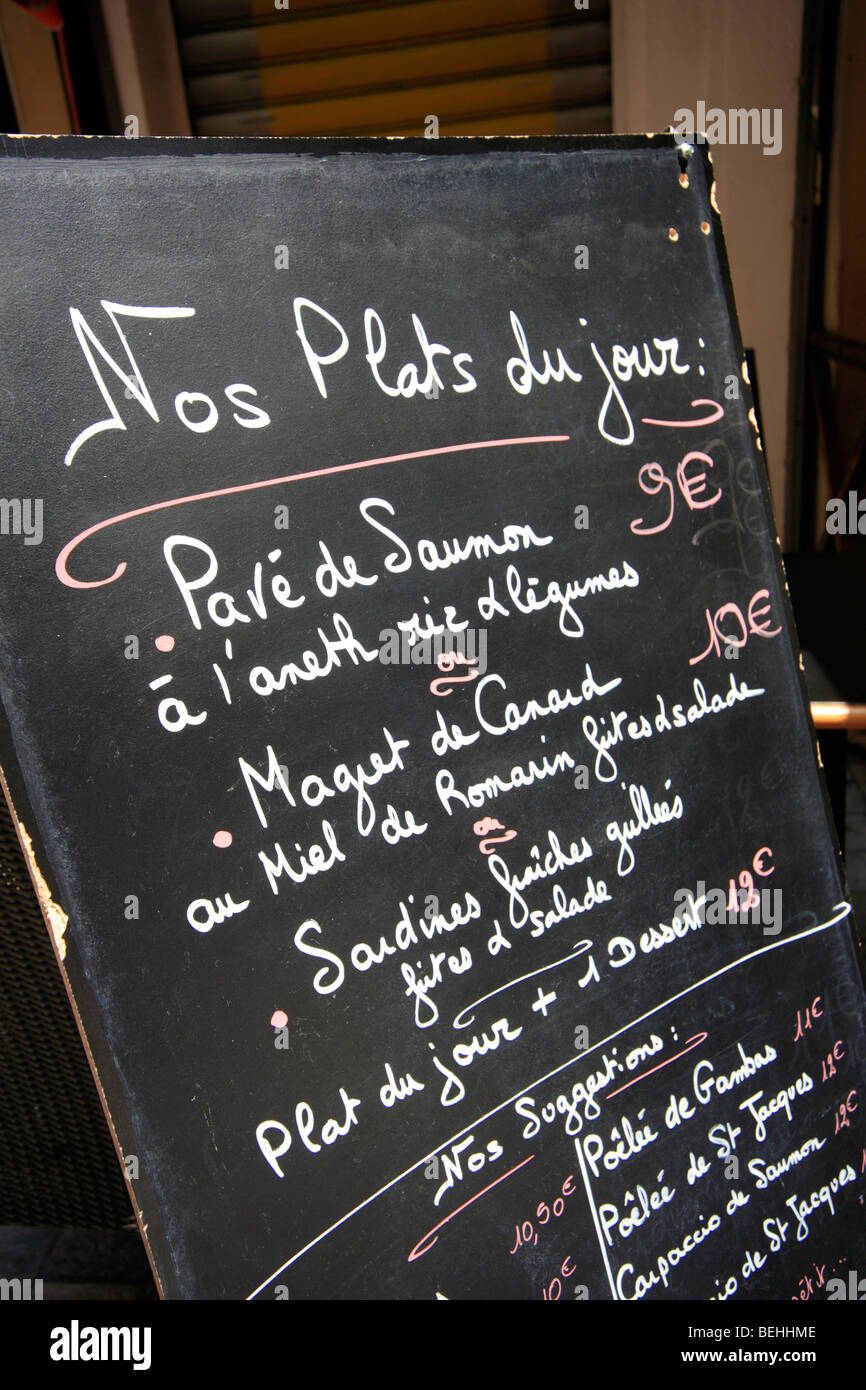 Nos Plats du jour :
9€
Pavé de Saumon
à l'aneth riz & légumes
ou
10€
Magret de Canard
au Miel de Romarin frites & salade
ou
Sardines fraîches grillées
frites & salade
Plat du jour + 1 Dessert 12€
Nos Suggestions :
10,50€
10€
Poêlée de Gambas 11€
Poêlée de St Jacques 12€
Carpaccio de Saumon 12€
de St Jacques
alamy
Image ID: BEHHME
www.alamy.com